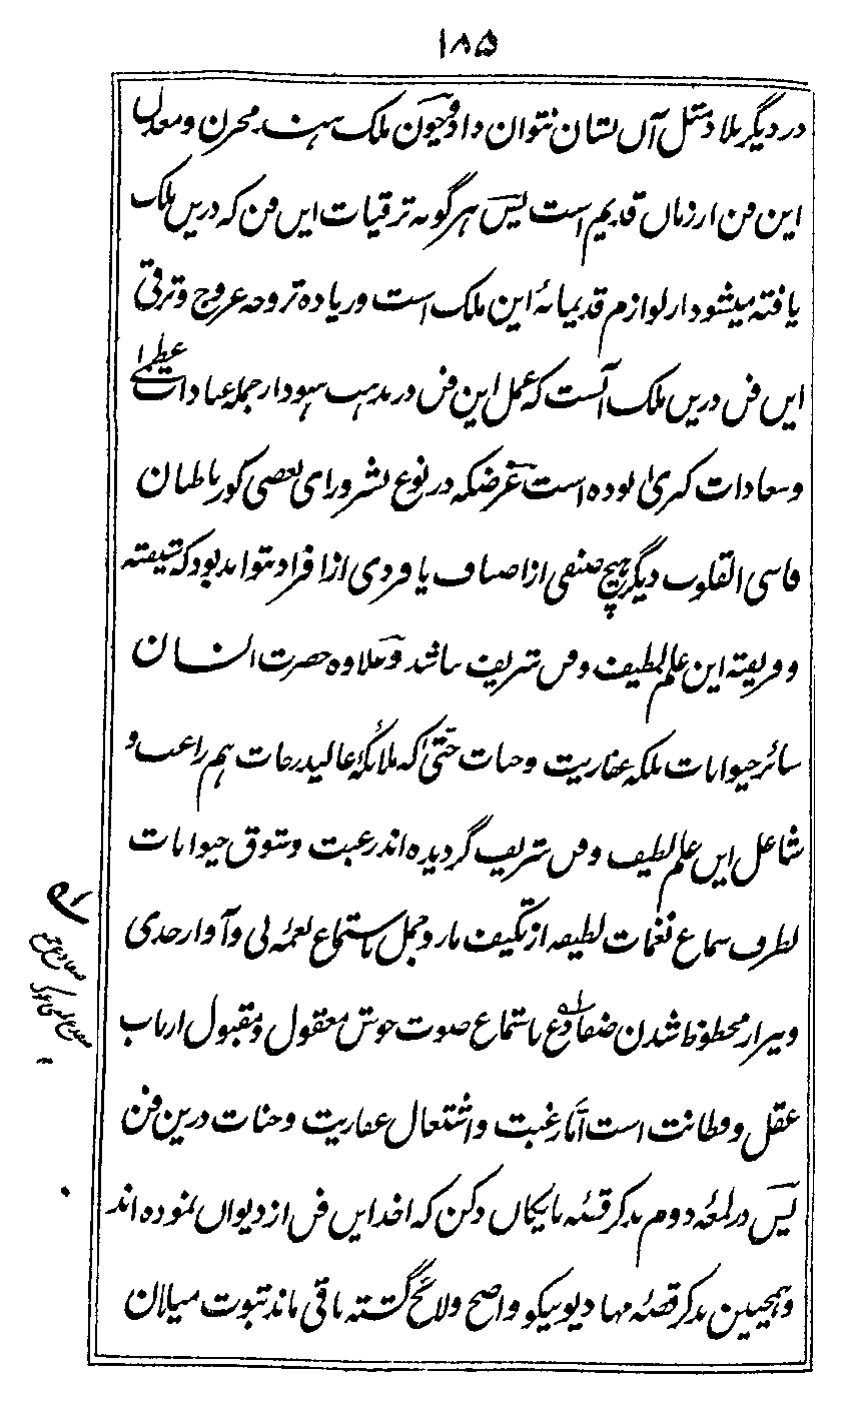 ۱۸۵
در دیگر بلاد مثل آں نشان نتوان داد و چون ملک ہند مخزن و معدن
این فن از زماں قدیم است پس ہرگونہ ترقیات ایں فن کہ دریں ملک
یافتہ میشود از لوازم قدیمانۂ این ملک است و زیادہ تر وجہ عروج و ترقی
ایں فن دریں ملک آنست کہ عمل این فن در مذہب ہنود از جملہ عبادات عظمےٰ
و سعادات کبریٰ بودہ است غرضکہ در نوع بشر ورای بعضی کور باطنان
قاسی القلوب دیگر ہیچ صنفی از اصناف یا فردی از افراد نتواند بود کہ شیفتہ
و فریفتہ این علم لطیف و فن شریف نباشد و علاوہ حضرت انسان
سائر حیوانات بلکہ عفاریت و جنات حتّیٰ کہ ملائکۂ عالیدرجات ہم راغب و
شاغل ایں علم لطیف و فن شریف گردیدہ اند رغبت و شوق حیوانات
بطرف سماع نغمات لطیفہ از تکیف مار و جمل باستماع نغمہ نی و آواز حدی
و نیز از محظوظ شدن ضفادع باستماع صوت خوش معقول و مقبول ارباب
عقل و فطانت است اما رغبت و اشتغال عفاریت و جنات درین فن
پس در لمعۂ دوم بذکر قصۂ نایکاں دکن کہ اخذ ایں فن از دیواں نمودہ اند
و ہمچنین بذکر قصۂ مہادیو نیکو واضح و لائح گشتہ باقی ماند ثبوت میلان
ضفادع جمع